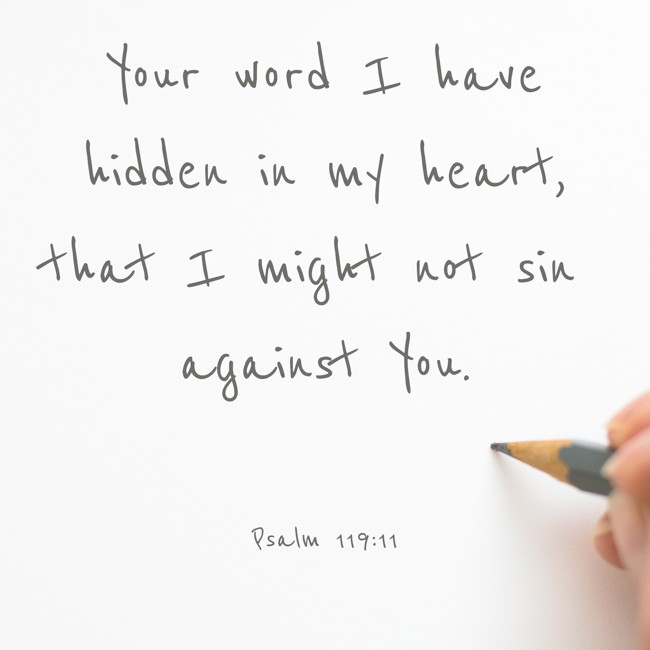 Your word I have
hidden in my heart,
that I might not sin
against You.
Psalm 119:11